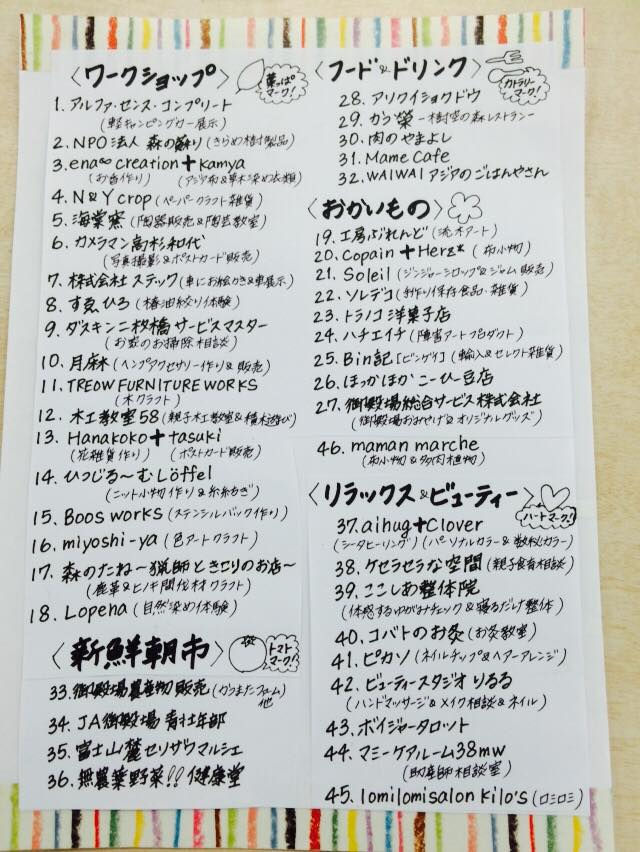 〈ワークショップ〉
葉っぱマーク!
1. アルファ・センス・コンプリート
(軽キャンピングカー展示)
2. NPO法人 森の蘇り(きらめ樹製品)
3. ena∞creation+kamya
(お香作り) (アジア布&草木染め衣類)
4. N&Y crop (ペーパークラフト雑貨)
5. 海棠窯 (陶器販売&陶芸教室)
6. カメラマン高杉和代
(写真撮影&ポストカード販売)
7. 株式会社 ステック(車にお絵かき&車展示)
8. すゑひろ (椿油絞り体験)
9. ダスキン二枚橋サービスマスター
(お窓のお掃除相談)
10. 月麻木 (ヘンプアクセサリー作り&販売)
11. TREOW FURNITURE WORKS
(木クラフト)
12. 木工教室58 (親子木工教室&積木遊び)
13. Hanakoko+tasuki
(花雑貨作り) (ポストカード販売)
14. ひつじる〜む Löffel
(ニット小物作り&糸紡ぎ)
15. Boos works (ステンシルバック作り)
16. miyoshi-ya (色アートクラフト)
17. 森のたね〜猟師ときこりのお店〜
(鹿革&ヒノキ間伐材クラフト)
18. Lopena (自然染め体験)
〈新鮮朝市〉
トマトマーク!
33. 御殿場農産物販売 (かつまたファーム他)
34. JA御殿場 青壮年部
35. 富士山麓セリザワマルシェ
36. 無農薬野菜!! 健康堂
〈フード&ドリンク〉
カトラリーマーク!
28. アリクイショクドウ
29. かつ榮 -樹空の森レストラン-
30. 肉のやまよし
31. Mame Cafe
32. WAIWAI アジアのごはんやさん
〈おかいもの〉
19. 工房ぶれんど (流木アート)
20. Copain+Herz* (布小物)
21. Soleil (ジンジャーシロップ&ジャム販売)
22. ソレデコ (手作り保存食品・雑貨)
23. トラノコ洋菓子店
24. ハチエイチ (障害アートプロダクト)
25. Bin記 [ビンゲイ] (輸入&セレクト雑貨)
26. ほっかほか こーひー豆店
27. 御殿場総合サービス株式会社
(御殿場おみやげ&オリジナルグッズ)
46. maman marche
(布小物&多肉植物)
〈リラックス&ビューティー〉
ハートマーク!
37. aihug+Clover
(シータヒーリング) (パーソナルカラー&数秘カラー)
38. ケセラセラな空間 (親子食育相談)
39. ここしあ整体院
(体感するゆがみチェック&寝るだけ整体)
40. コバトのお灸 (お灸教室)
41. ピカソ (ネイルチップ&ヘアーアレンジ)
42. ビューティースタジオ りるる
(ハンドマッサージ&メイク相談&ネイル)
43. ボイジャータロット
44. マミーケアルーム38mw
(助産師相談室)
45. lomilomisalon kilo's (ロミロミ)